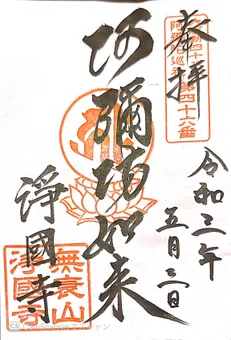 奉拝
阿彌陀如来
令和三年
五月二日
淨國寺
第四十六番
無哀山
淨國寺